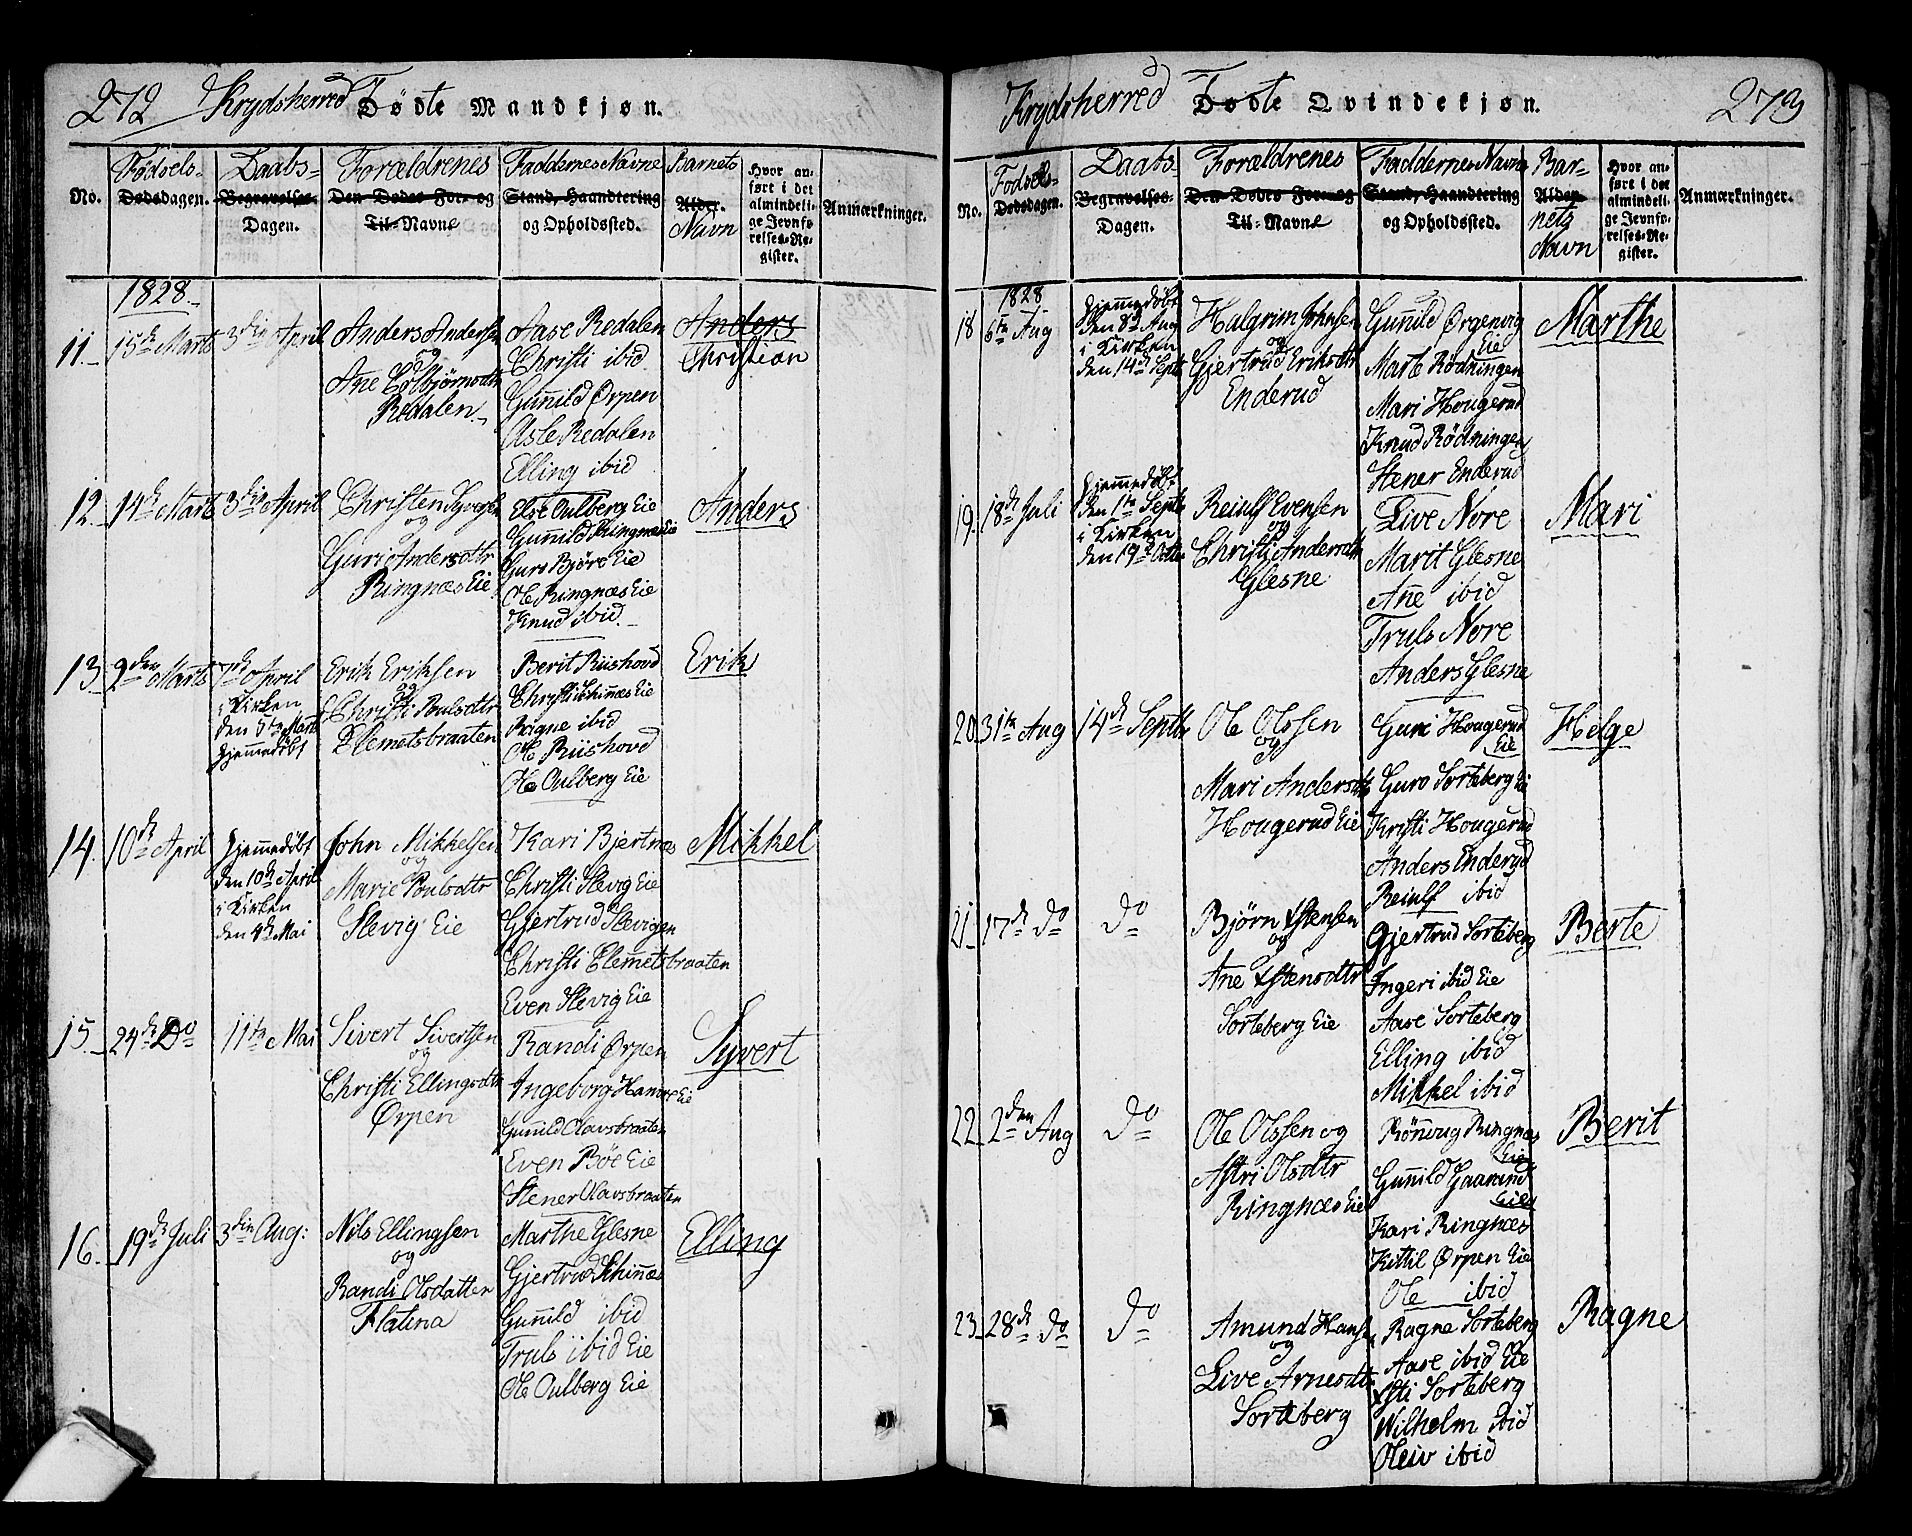 272 Krydsherred Fødte Mandkjøn.
No.
Fødsels-
Dødsdagen.
Daabs-
Begravelses-
Dagen.
Forældrenes
Den Dødes For- og
Til-Navne
Faddernes Navne
Stand, Haandtering
og Opholdssted.
Barnets
Alder.
Navn
Hvor an-
ført i det
almindeli-
ge Jevnfø-
relses-Re-
gister.
Anmærkninger.
1828.
11. 15de Marts 3die April
Anders Andersen
og
Ane Colbjørnsdtr
Redalen
Aase Redalen
Christi ibid
Gunild Ørpen
Asle Redalen
Elling ibid
Anders
Christian
12. 14de Marts 3die April
Christen
og
Guri Andersdtr
Ringnæs Eie
Else Aulberg Eie
Gunild Ringnæs Eie
Guro Bjøre Eie
Ole Ringnæs Eie
Knud ibid
Anders
13. 2den Marts 7de April
i Kirken
den 5te Marts
hjemmedøbt
Erik Eriksen
og
Christi Poulsdtr
Klemetsbraaten
Berit Riishovd
Christi Skinæs Eie
Ragne ibid
Ole Riishovd
Ole Aulberg Eie
Erik
14. 10de April
hjemmedøbt
den 10de April
i Kirken
den 4de Mai
John Mikkelsen
og
Marie Poulsdtr
Slevig Eie
Kari Bjertnæs
Christi Slevig Eie
Gjertrud Slevigen
Christi Clemetsbraaten
Even Slevig Eie
Mikkel
15. 24de Do 11te Mai
Sivert Sivertsen
og
Christi Ellingsdtr
Ørpen
Randi Ørpen
Ingeborg Hamre Eie
Gunild Olavsbraaten
Even Bøe Eie
Stener Olavsbraaten
Syvert
16. 19de Juli 3die Aug:
Nils Ellingsen
og
Randi Olsdatter
Flatina
Marthe Glesne
Gjertrud Skinnæs
Gunild ibid
Truls ibid Eie
Ole Aulberg Eie
Elling
Krydsherred Fødte Qvindekjøn. 273
No.
Fødsels-
Dødsdagen.
Daabs-
Begravelses-
Dagen.
Forældrenes
Den Dødes For- og
Til-Navne
Faddernes Navne
Stand, Haandtering
og Opholdssted.
Bar-
Alder.
nets
Navn
Hvor an-
ført i det
almindeli-
ge Jevnfø-
relses-Re-
gister.
Anmærkninger.
1828
18 6te Aug
hjemmedøbt
den 8de Aug
i Kirken
den 14de Septr
Halgrim Johnsen
og
Gjertrud Eriksdtr
Enderud
Gunild Ørgenvig
Eie
Marte Rødningen
Mari Hougerud
Knud Rødningen
Stener Enderud
Marthe
19. 18de Juli
hjemmedøbt
den 1te Septr
i Kirken
den 19de Octbr
Reiulf Evensen
og
Christi Andersdtr
Glesne
Live Nore
Marit Glesne
Ane ibid
Truls Nore
Anders Glesne
Mari
20. 31te Aug 14de Septbr
Ole Olssen
og
Mari Andersdtr
Hougerud Eie
Guri Hougerud
Eie
Guro Sorteberg Eie
Kristi Hougerud
Anders Enderud
Reiulf ibid
Helge
21. 17de do do
Bjørn Estensen
og
Ane Estensdtr
Sorteberg Eie
Gjertrud Sorteberg
Ingeri ibid Eie
Aase Sorteberg
Elling ibid
Mikkel ibid
Berte
22. 2den Aug do
Ole Olssen og
Astri Olsdtr
Ringnæs Eie
Rønnoug Ringnæs
Eie
Gunild Gaarand
Kari Ringnæs
Kittil Ørpen Eie
Ole ibid
Berit
23. 28de do do
Amund Hansen
og
Live Arnesdtr
Sorteberg
Ragne Sorteberg
Aase ibid Eie
Sorteberg
Wilhelm ibid
Oleiv ibid
Ragne